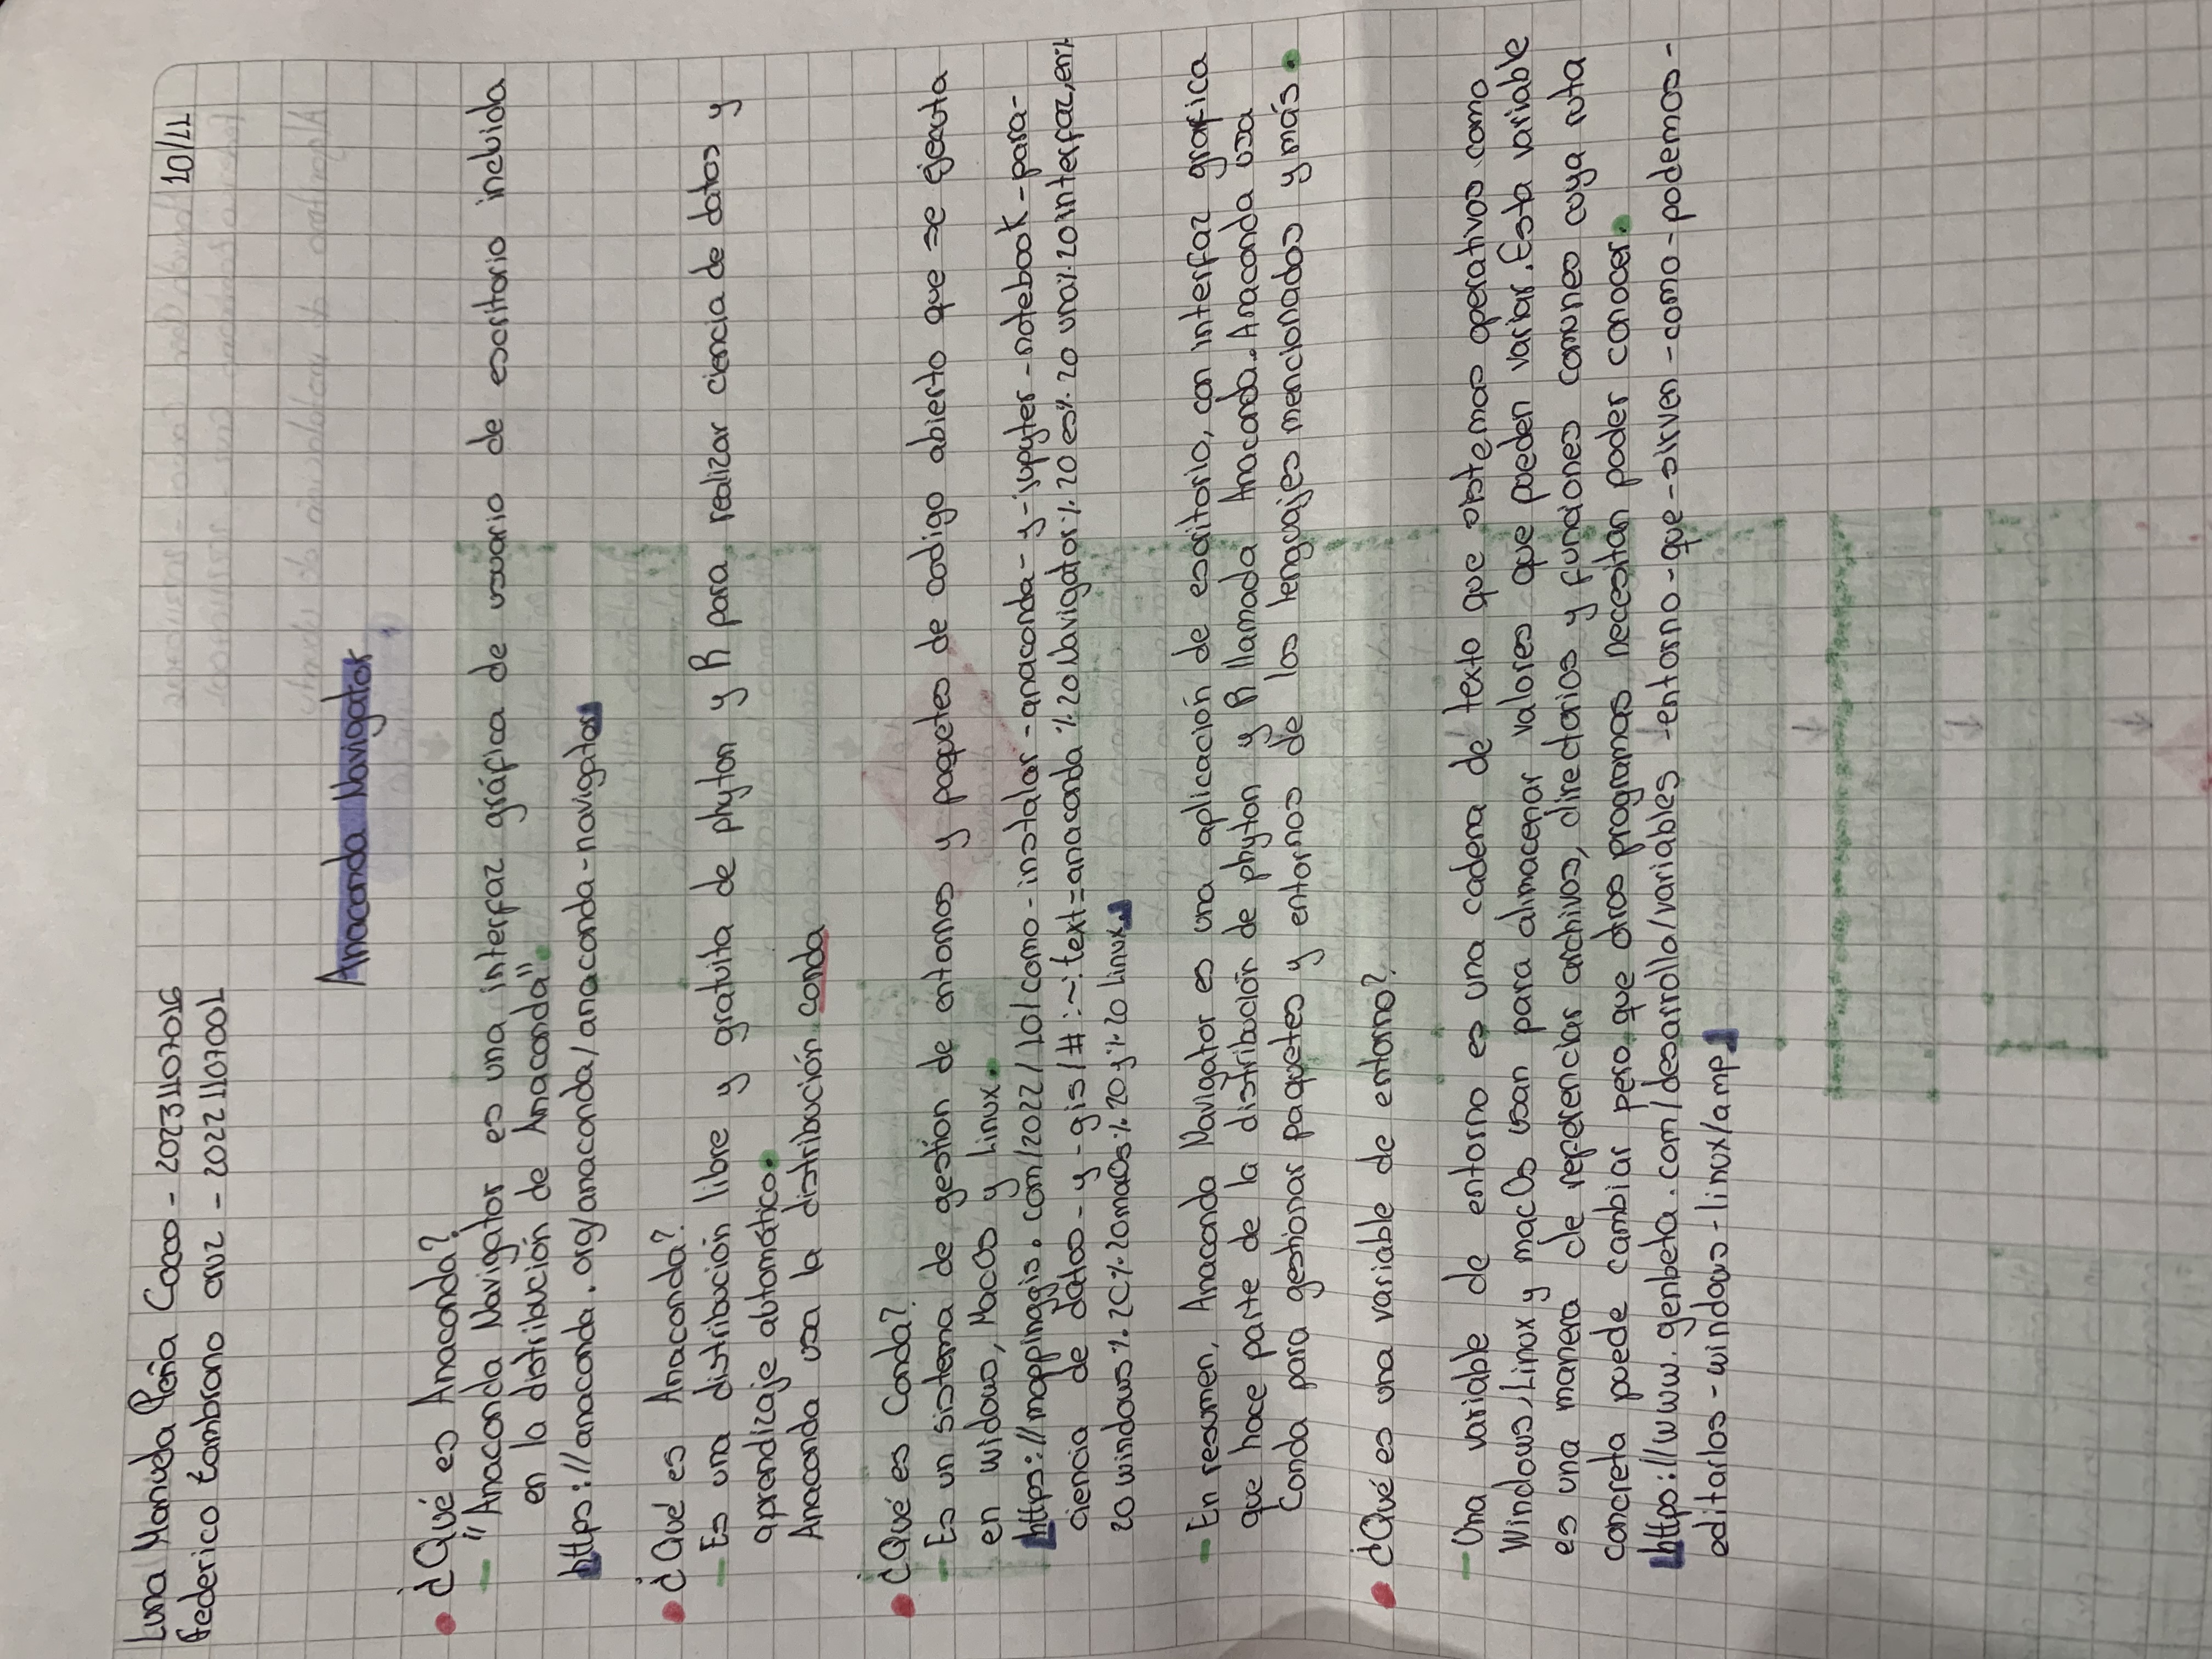 Luna Manuela Peña Cocco - 20231107016
10/11
Federico Zambrano cruz - 20221107001
Anaconda Navigator
¿Qué es Anaconda?
- "Anaconda Navigator es una interfaz gráfica de usuario de escritorio incluida
en la distribución de Anaconda".
https://anaconda.org/anaconda/anaconda-navigator
¿Qué es Anaconda?
- Es una distribución libre y gratuita de phyton y R para realizar ciencia de datos y
aprendizaje automático.
Anaconda usa la distribución conda
¿Qué es Conda?
- Es un sistema de gestión de entornos y paquetes de codigo abierto que se ejecuta
en widows, MacOs y Linux.
https://mappinggis.com/2022/10/como-instalar-anaconda-y-jupyter-notebook-para-
ciencia de datos-y-gis/#:~:text=anaconda%20Navigator%20es%20una%20interfaz,en%
20windows%2C%20macOs%20y%20Linux.
- En resumen, Anaconda Navigator es una aplicación de escritorio, con interfaz grafica
que hace parte de la distribución de phyton y R llamada Anaconda. Anaconda usa
Conda para gestionar paquetes y entornos de los lenguajes mencionados y más.
¿Qué es una variable de entorno?
- Una variable de entorno es una cadena de texto que sistemas operativos como
Windows, Linux y macOs usan para almacenar valores que pueden variar. Esta variable
es una manera de referenciar archivos, directorios y funciones comunes cuya ruta
concreta puede cambiar pero que otros programas necesitan poder conocer.
https://www.genbeta.com/desarrollo/variables-entorno-que-sirven-como-podemos-
editarlos-windows-linux/amp